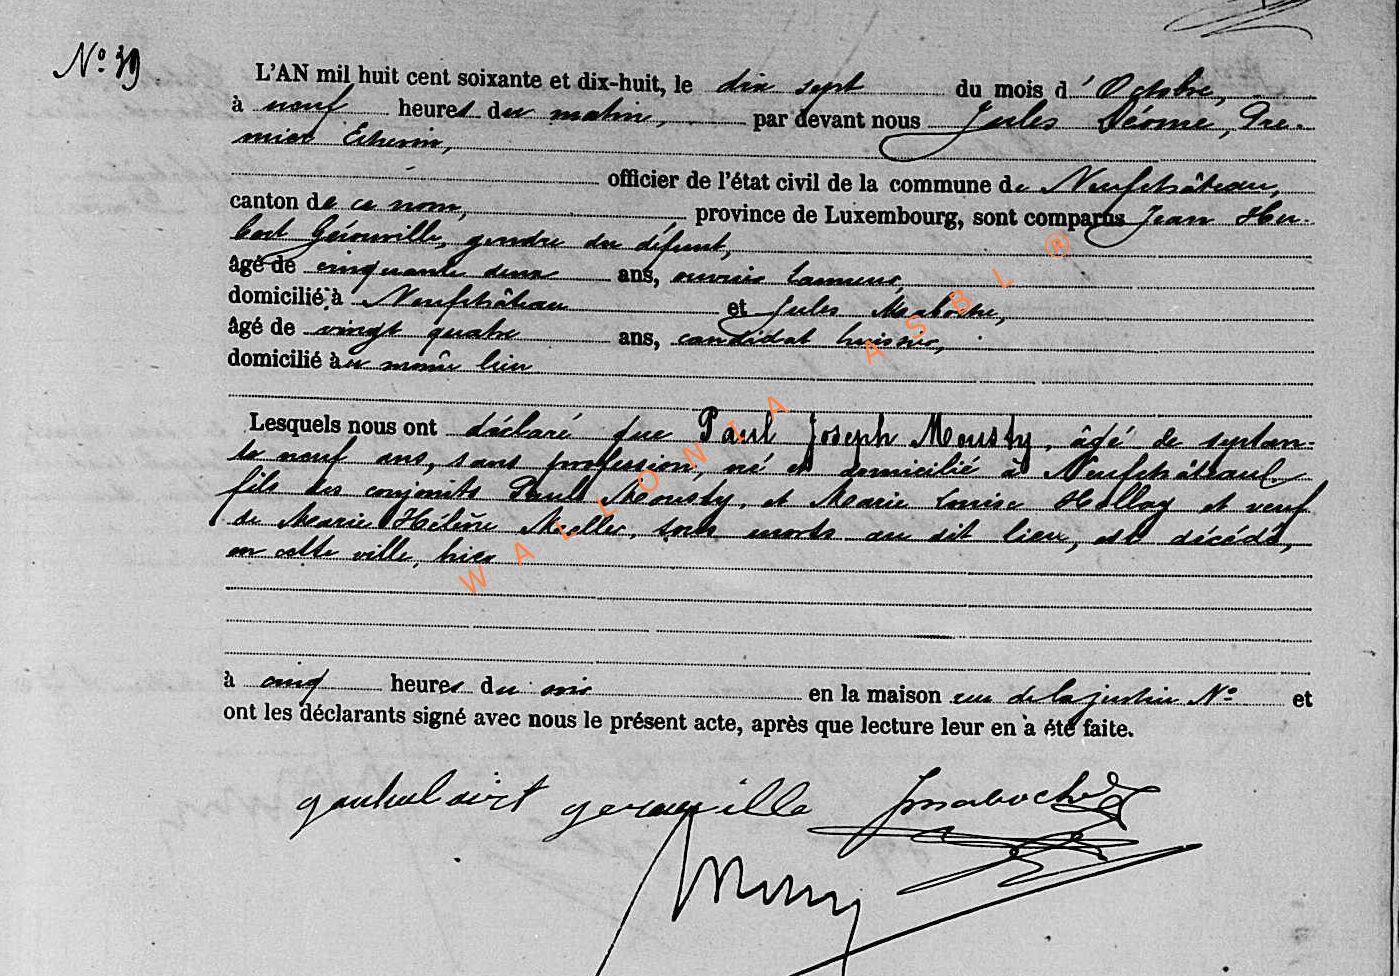 N° 39
L'AN mil huit cent soixante et dix-huit, le dix sept du mois d'Octobre,
à neuf heures du matin, par devant nous Jules Dérome, Pre-
mier Echevin,
officier de l'état civil de la commune de Neufchâteau,
canton de ce nom, province de Luxembourg, sont comparus Jean Hu-
bert Gérouville, gendre du défunt,
âgé de cinquante deux ans, ouvrier tanneur,
domicilié à Neufchâteau et Jules Maboche,
âgé de vingt quatre ans, candidat huissier,
domicilié au même lieu
Lesquels nous ont déclaré que Paul Joseph Mousty, âgé de septan-
te neuf ans, sans profession, né et domicilié à Neufchâteau
fils des conjoints Paul Mousty, et Marie Louise et veuf
de Marie Hélène tous morts au dit lieu, est décédé,
en cette ville, hier
à cinq heures du soir en la maison rue de la justice N° et
ont les déclarants signé avec nous le présent acte, après que lecture leur en a été faite.
gerouville JMaboche
WALLONIA ASBL ®